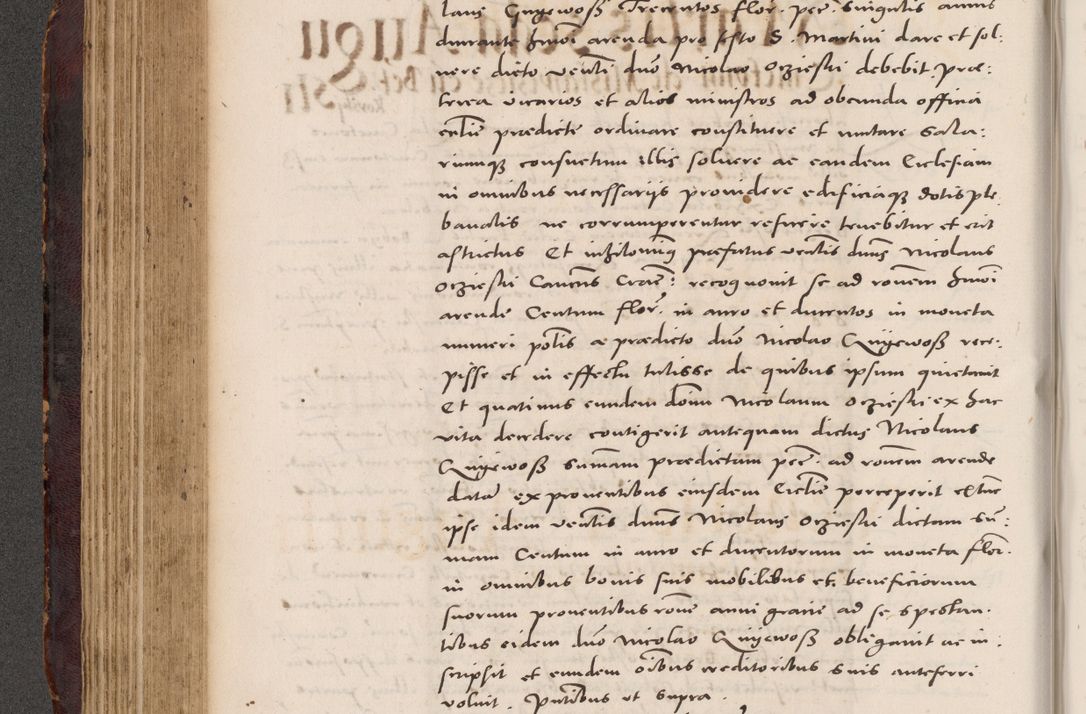 laus Gnyewosß Trecentos flor. pec. singulis annis
durante hmoi arenda pro festo S. Martini dare et sol:
vere dicto venti dno Nicolao Orzieski debebit. Præ:
terea vicarios et alios ministros ad obeunda officia
ecclie prædicte ordinare constituere et mutare Sala:
riumq consuetum illis solvere ac eandem Ecclesiam
in omnibus necessarijs providere edificiaq dotis ple
banalis ne corrumperentur reficere tenebitur et erit
astrictus Et inhilominq præfatus ventis dnus Nicolaus
Orzieski Cancrius Crac: recognovit se ad ronem hmoi
arende Centum flor. in auro et ducentos in moneta
numeri polis a prædicto dno Nicolao Gnyewosß rece:
pisse et in effectu tulisse de quibus ipsum quietavit
Et quatinus eundem dnum Nicolaum Orzieski ex hac
vita decedere contigerit antequam dictus Nicolaus
Gnyewosß Sumam prædictam pec. ad ronem arende
datam ex proventibus eiusdem Ecclie perceperit extunc
ipse idem ventis dnus Nicolaus Orzieski dictam Su:
mam Centum in auro et ducentorum in moneta flor.
in omnibus bonis suis mobilibus et beneficiorum
suorum proventibus rone anni gratie ad se spectan.
tibus eidem dno Nicolao Gnyewosß obligavit ac in:
scripsit et eundem oibus creditoribus suis anteferri
voluit. Pntibus ut supra.